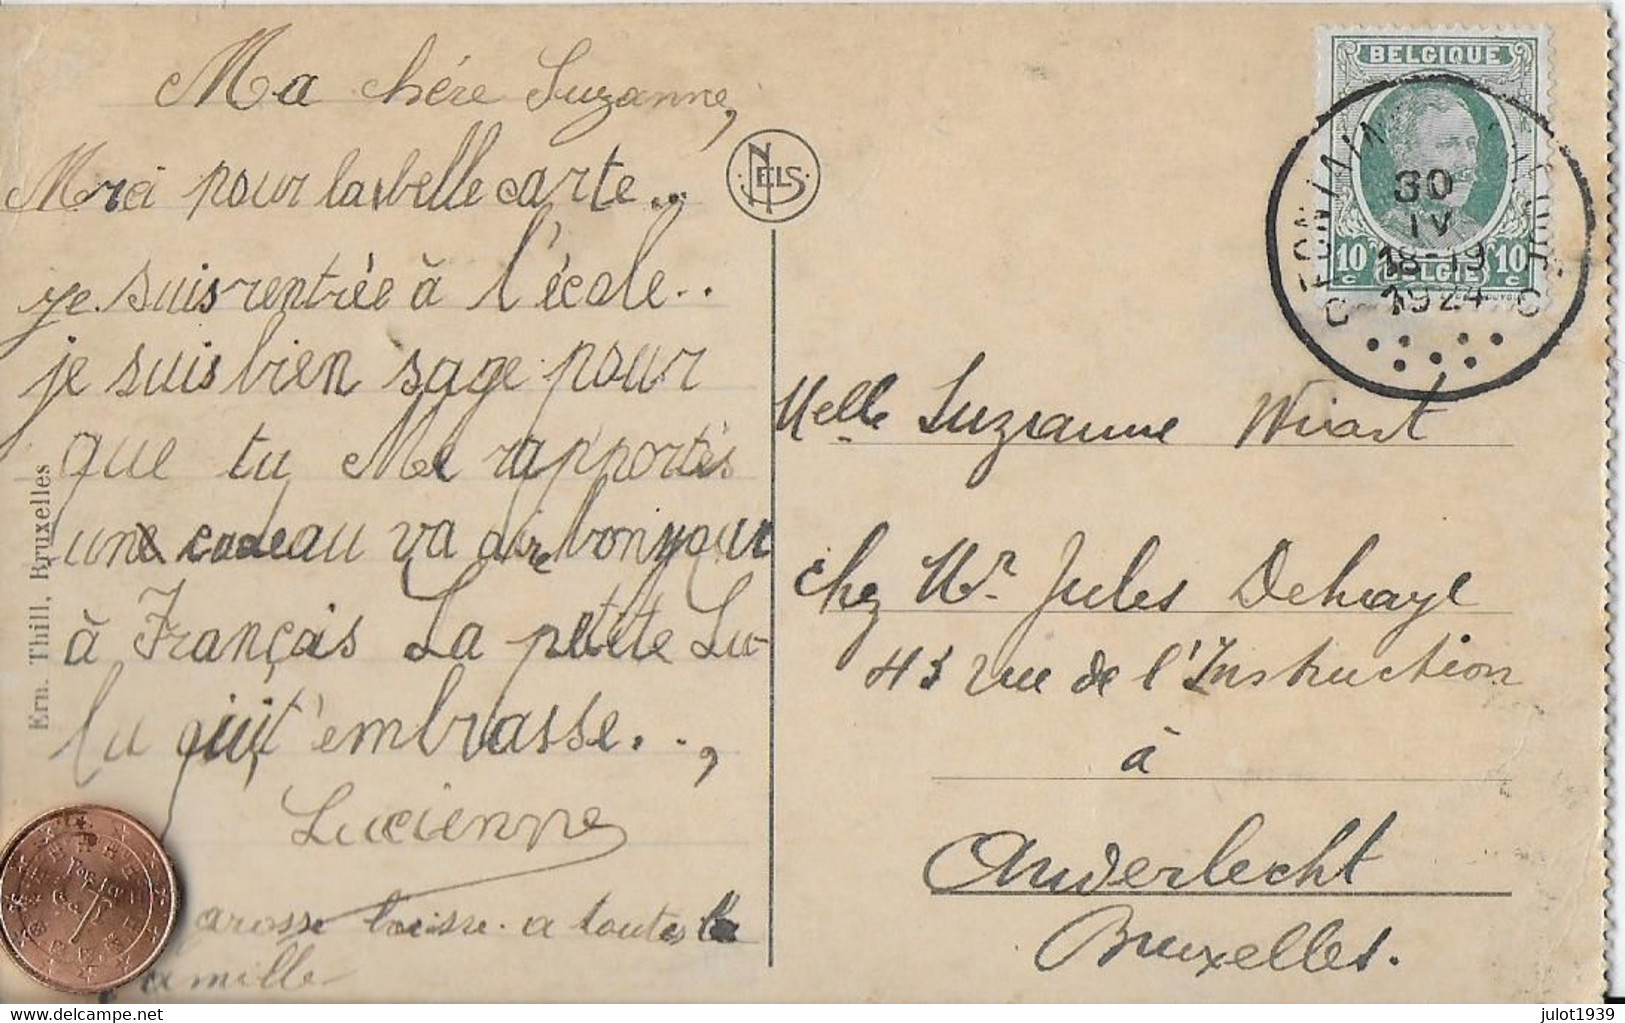 Ma chére Suzanne,
Mrci pour la belle carte..
je suis rentrée à l'école..
je suis bien sage pour
que tu Me rapportés
une cadeau va dire bonyour
à Français La petite Lu-
lu qui t'embrasse..,
Lucienne
grosse baisse a toutes la
famille
Ern. Thill, Bruxelles
NELS
BELGIQUE
10 c BELGIË 10 c
FONTAINE
30
IV
18-19
1924
C C
Melle Suzanne Wiart
chez Mr Jules Dehaye
43 rue de l'Instruction
à
Anderlecht
Bruxelles.
julot1939